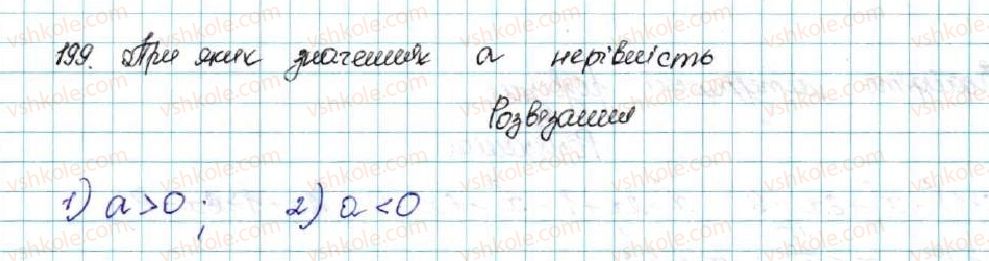 199. При яких значеннях a нерівність
Розв'язання
1) a > 0 ; 2) a < 0